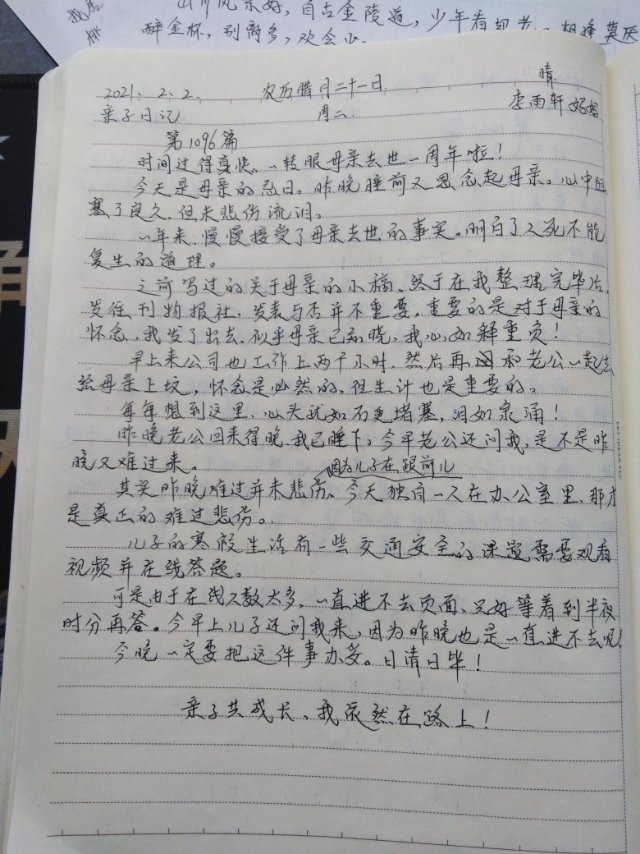 醉金杯，别离多，欢会少
2021.2.2. 农历腊月二十一日 晴
亲子日记 周二 李雨轩妈妈
第1096篇
时间过得真快。一转眼母亲去世一周年啦！
今天是母亲的忌日。昨晚睡前又思念起母亲。心中阻
塞了良久，但未悲伤流泪。
一年来，慢慢接受了母亲去世的事实。明白了人死不能
复生的道理。
之前写过的关于母亲的小稿。终于在我整理完毕后，
发往刊物报社，发表与否并不重要，重要的是对于母亲的
怀念，我发了出去，似乎母亲已知晓，我心如释重负！
早上来公司也工作上两个小时，然后再和老公一起去
给母亲上坟，怀念是必然的，但生计也是重要的。
每每想到这里，心头就如石更堵塞，泪如泉涌！
昨晚老公回来得晚，我已睡下，今早老公还问我，是不是昨
晚又难过来。
因为儿子在跟前儿
其实昨晚难过并未悲伤。今天独自一人在办公室里，那才
是真正的难过悲伤。
儿子的寒假生活有一些交通安全的课程需要观看
视频并在线答题。
可是由于在线人数太多，一直进不去页面，只好等着到半夜
时分再答。今早上儿子还问我来，因为昨晚也是一直进不去呢！
今晚一定要把这件事办妥。日清日毕！
亲子共成长，我依然在路上！